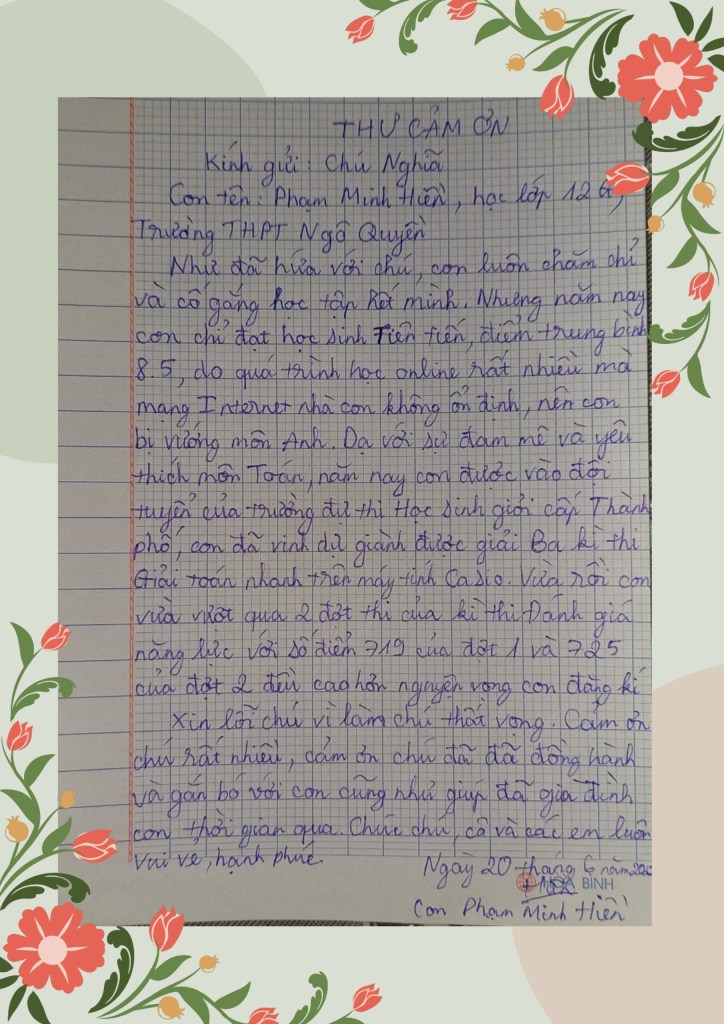 THƯ CẢM ƠN
Kính gửi : Chú Nghĩa
Con tên : Phạm Minh Hiền, học lớp 12
Trường THPT Ngô Quyền
Như đã hứa với chú, con luôn chăm chỉ
và cố gắng học tập hết mình. Nhưng năm nay
con chỉ đạt học sinh Tiên tiến, điểm trung bình
8.5, do quá trình học online rất nhiều mà
mạng Internet nhà con không ổn định, nên con
bị vướng môn Anh. Dạ với sự đam mê và yêu
thích môn Toán, năm nay con được vào đội
tuyển của trường dự thi Học sinh giỏi cấp Thành
phố, con đã vinh dự giành được giải Ba kì thi
Giải toán nhanh trên máy tính Casio. Vừa rồi con
vừa vượt qua 2 đợt thi của kì thi Đánh giá
năng lực với số điểm 719 của đợt 1 và 725
của đợt 2 đều cao hơn nguyện vọng con đăng kí
Xin lỗi chú vì làm chú thất vọng. Cảm ơn
chú rất nhiều, cảm ơn chú đã đã đồng hành
và gắn bó với con cũng như giúp đỡ gia đình
con thời gian qua. Chúc chú, cô và các em luôn
vui vẻ, hạnh phúc.
Ngày 20 tháng 6 năm
BINH
Con Phạm Minh Hiền